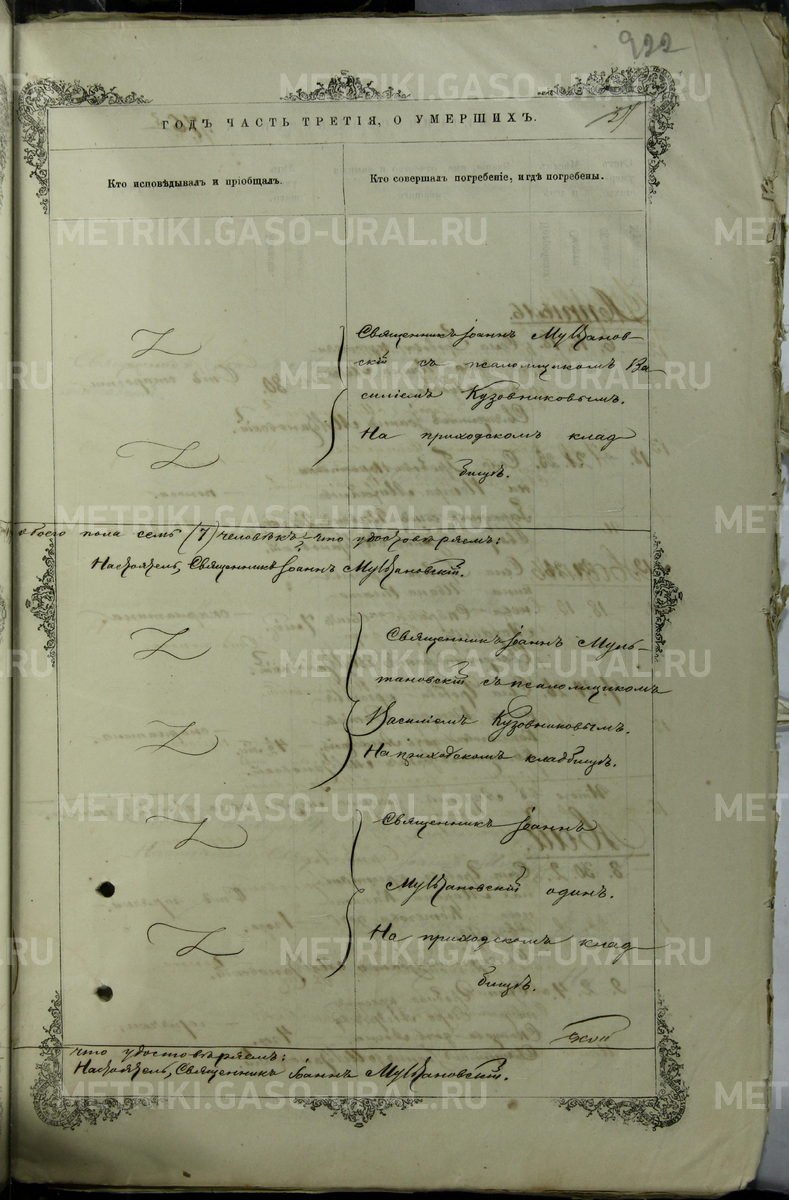 922
ГОДЪ ЧАСТЬ ТРЕТІЯ, О УМЕРШИХЪ.
Кто исповѣдывалъ и пріобщалъ.
Кто совершалъ погребеніе, и гдѣ погребены.
Священникъ Іоаннъ Мультанов-
скій съ псаломщикомъ Ва-
силіемъ Кузовниковымъ.
На приходскомъ клад-
бищѣ.
обоего пола семь (7) человѣкъ, что удостовѣряемъ:
Настоятель, Священникъ Іоаннъ Мультановскій.
Священникъ Іоаннъ Муль-
тановскій съ псаломщикомъ
Василіемъ Кузовниковымъ.
На приходскомъ кладбищѣ.
Священникъ Іоаннъ
Мультановскій одинъ.
На приходскомъ клад-
бищѣ.
что удостовѣряемъ:
Настоятель, Священникъ Іоаннъ Мультановскій.
METRIKI.GASO-URAL.RU